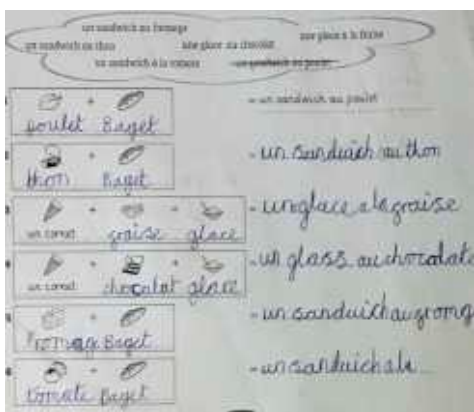 un sandwich au fromage
un sandwich au thon une glace au chocolat une glace à la fraise
un sandwich à la tomate un sandwich au poulet
poulet Baget
= un sandwich au poulet
thon Baget
= un sanduich au thon
un cornet fraise glace
= un glace a la graise
un cornet chocolat glace
= un glass au chocolat
Fromage Baget
= un sanduich au gromg
tomate Baget
= un sanduich ala